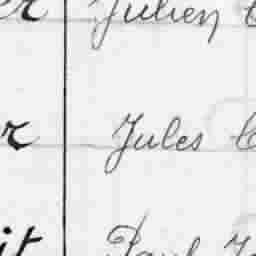 er Julien C
r Jules C
it Paul J